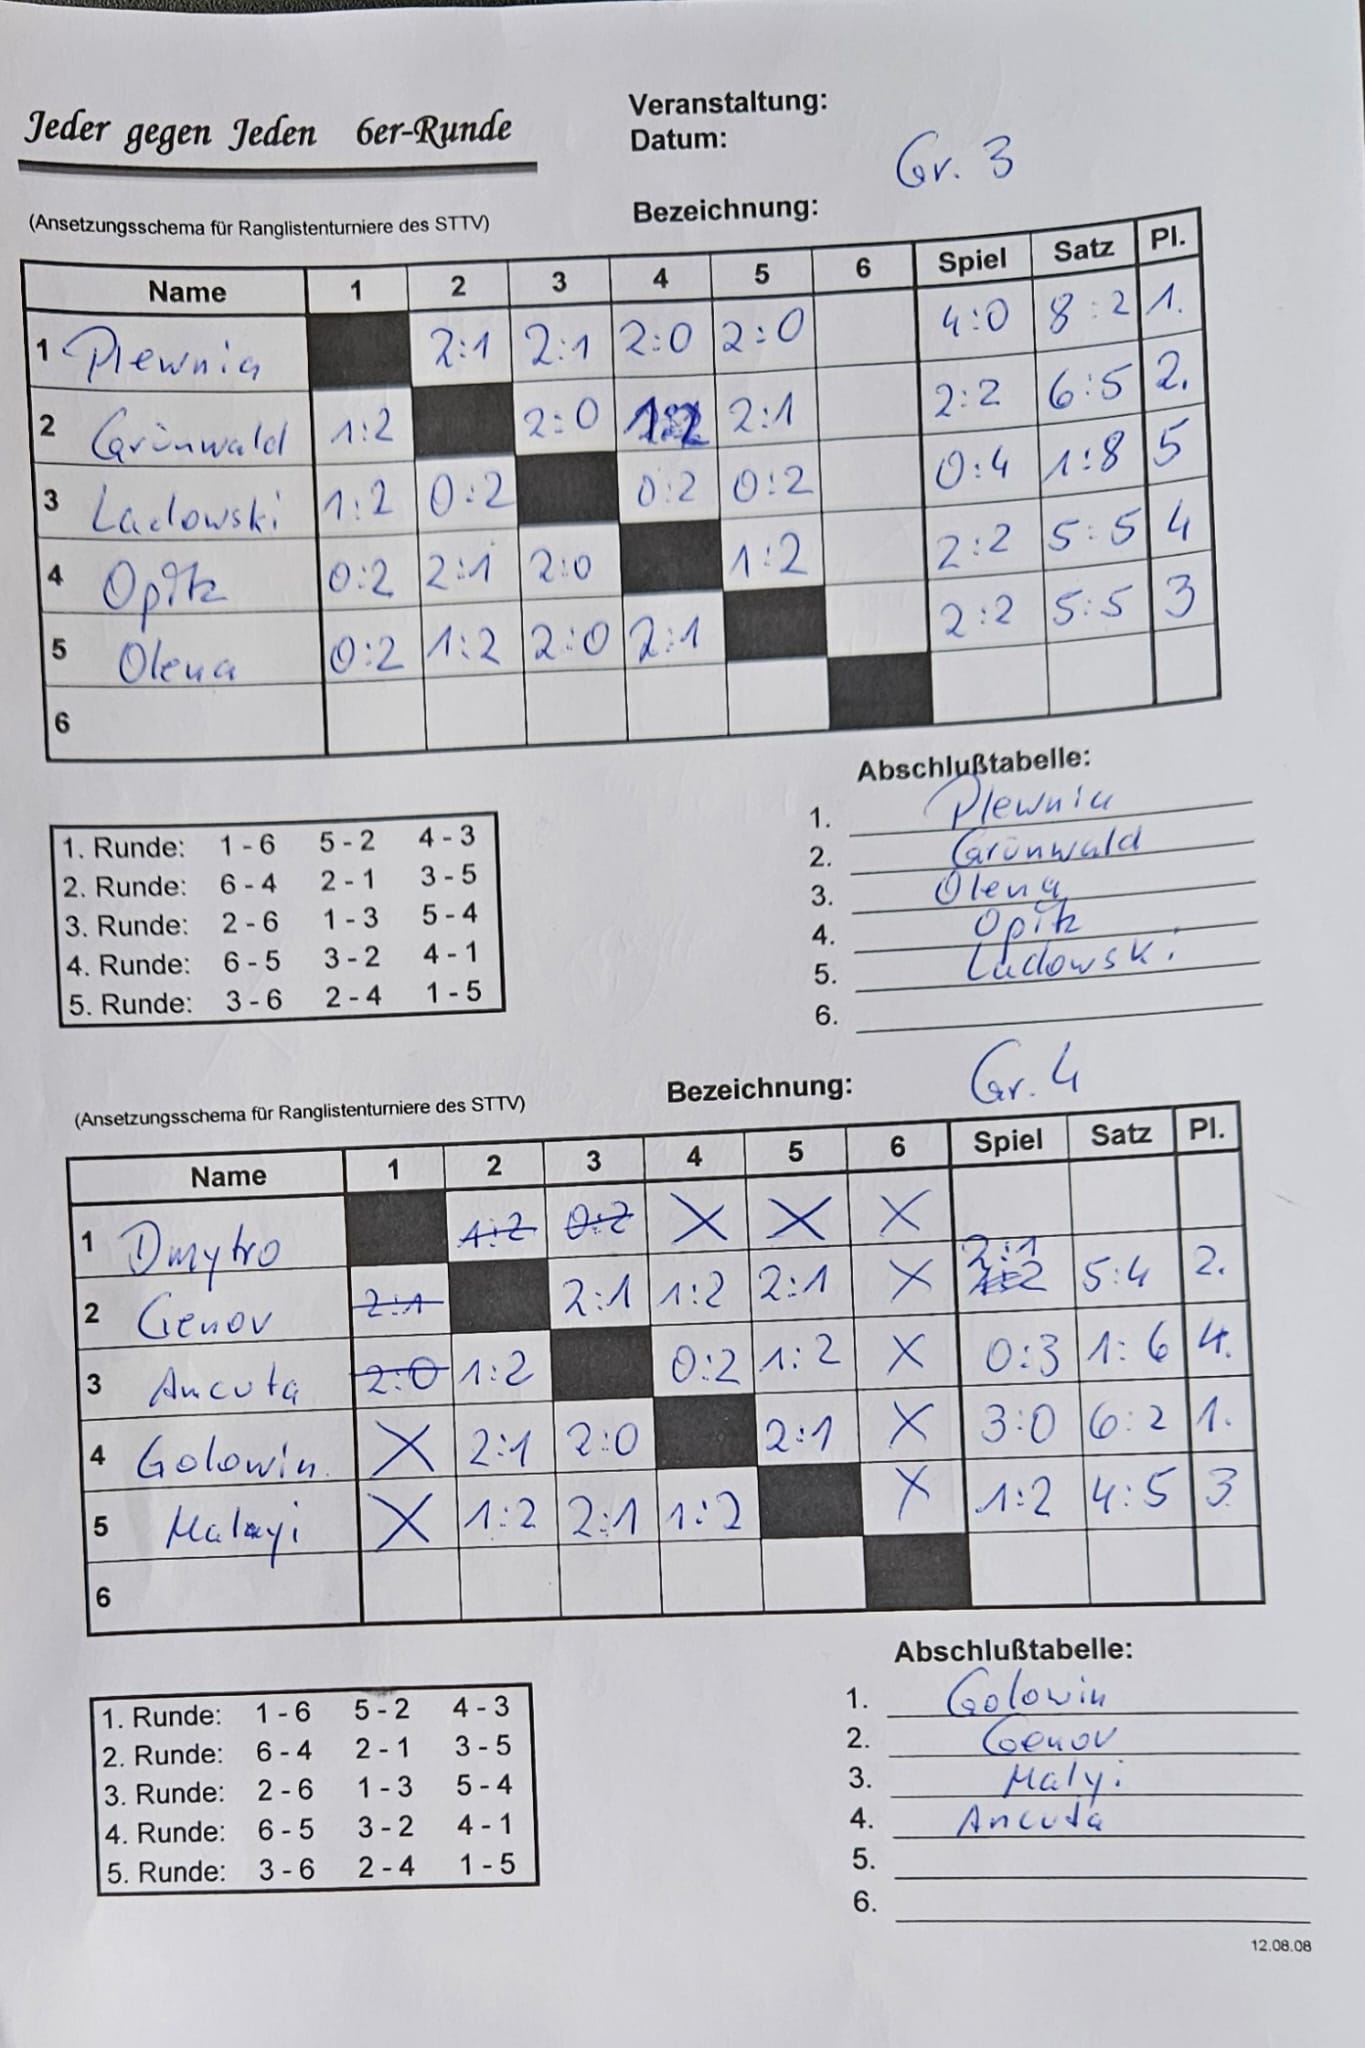 Jeder gegen Jeden 6er-Runde
Veranstaltung:
Datum:
Gr. 3
(Ansetzungsschema für Ranglistenturniere des STTV)
Bezeichnung:
Name 1 2 3 4 5 6 Spiel Satz Pl.
1 Plewnia 2:1 2:1 2:0 2:0 4:0 8:2 1.
2 Grünwald 1:2 2:0 1:2 2:1 2:2 6:5 2.
3 Ladowski 1:2 0:2 0:2 0:2 0:4 1:8 5
4 Opitz 0:2 2:1 2:0 1:2 2:2 5:5 4
5 Olena 0:2 1:2 2:0 2:1 2:2 5:5 3
6
Abschlußtabelle:
1. Plewnia
2. Grünwald
3. Olena
4. Opitz
5. Ladowski
6.
1. Runde: 1 - 6 5 - 2 4 - 3
2. Runde: 6 - 4 2 - 1 3 - 5
3. Runde: 2 - 6 1 - 3 5 - 4
4. Runde: 6 - 5 3 - 2 4 - 1
5. Runde: 3 - 6 2 - 4 1 - 5
Gr. 4
(Ansetzungsschema für Ranglistenturniere des STTV)
Bezeichnung:
Name 1 2 3 4 5 6 Spiel Satz Pl.
1 Dmytro 1:2 0:2 X X X
2 Genov 2:1 2:1 1:2 2:1 X 2:1 5:4 2.
3 Ancuta 2:0 1:2 0:2 1:2 X 0:3 1:6 4.
4 Golowin X 2:1 2:0 2:1 X 3:0 6:2 1.
5 Malyi X 1:2 2:1 1:2 X 1:2 4:5 3.
6
Abschlußtabelle:
1. Golowin
2. Genov
3. Malyi
4. Ancuta
5.
6.
1. Runde: 1 - 6 5 - 2 4 - 3
2. Runde: 6 - 4 2 - 1 3 - 5
3. Runde: 2 - 6 1 - 3 5 - 4
4. Runde: 6 - 5 3 - 2 4 - 1
5. Runde: 3 - 6 2 - 4 1 - 5
12.08.08